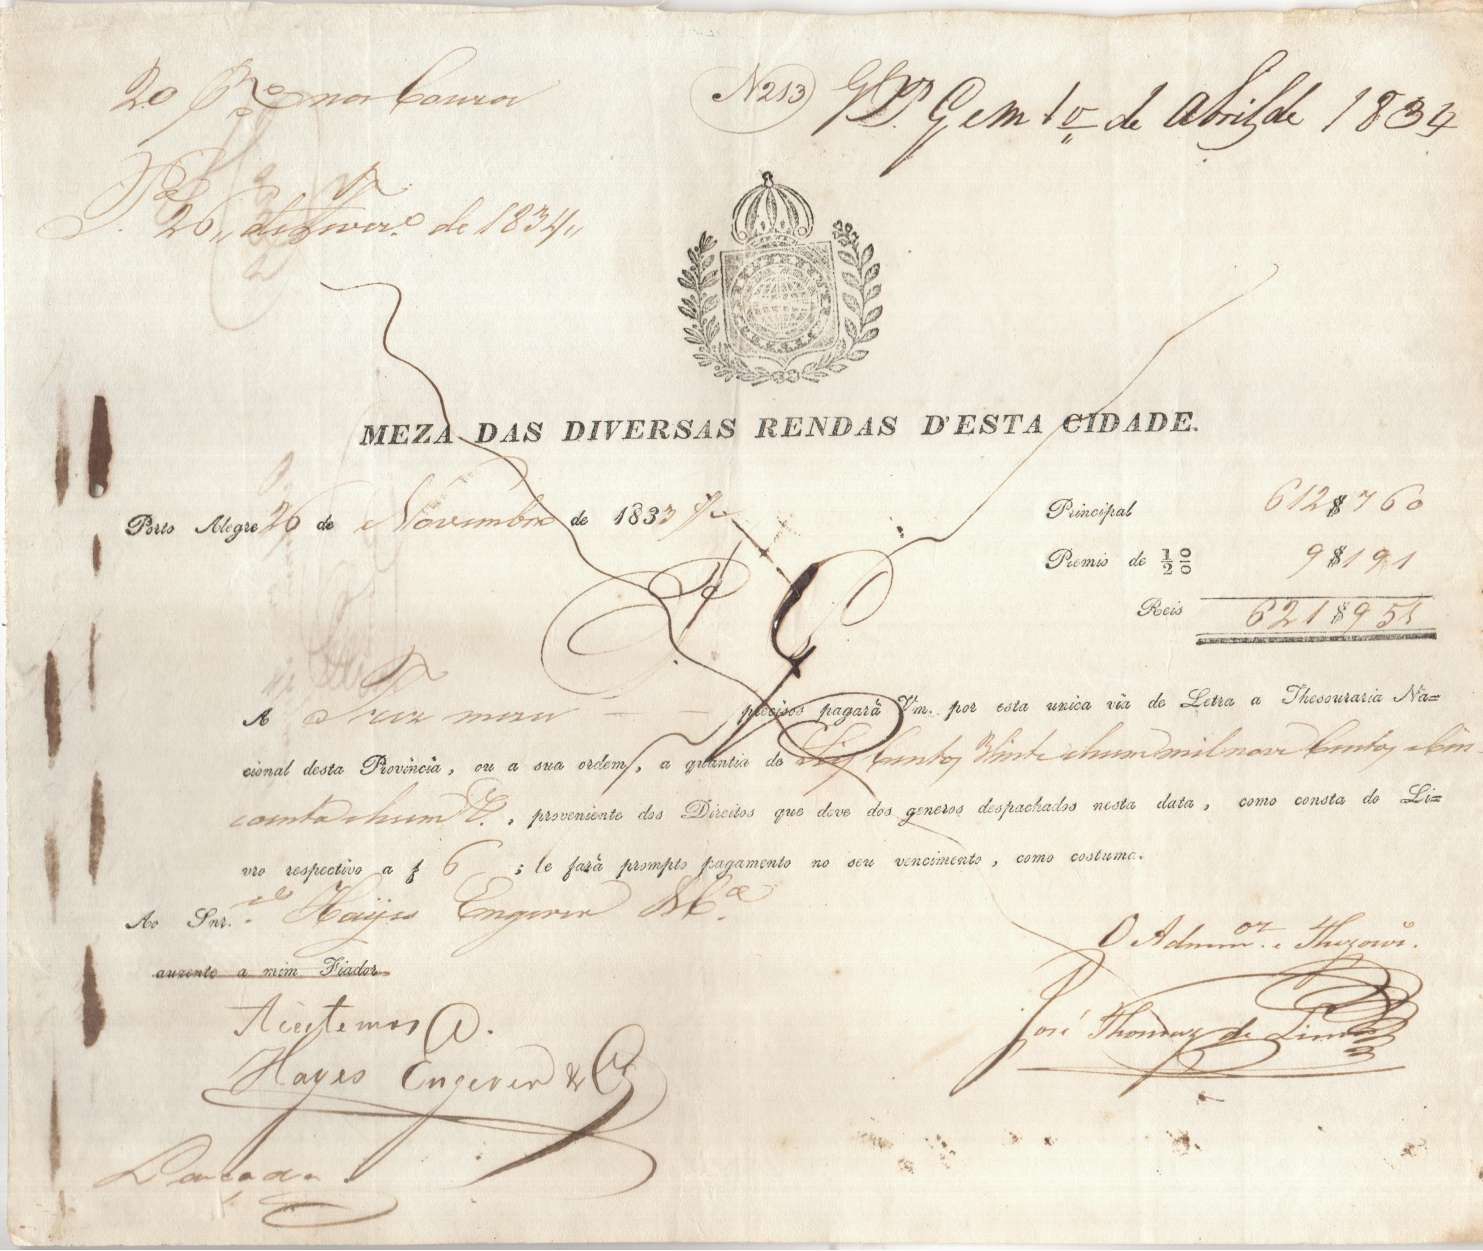 N 213
G em 1º de Abril de 1834
26 de Fever.º de 1834
MEZA DAS DIVERSAS RENDAS D'ESTA CIDADE.
Porto Alegre 26 de Novembro de 1833
Principal 612$760
Premio de 1/2 0/0 9$191
Reis 621$951
A Trez mezes precisos pagará Vm. por esta unica via de Letra a Thesouraria Na=
cional desta Provincia, ou a sua ordem, a quantia de Seis Centos Vinte e hum mil nove Centos e Cin
coenta e hum r.s, proveniente dos Direitos que deve dos generos despachados nesta data, como consta do Li=
vro respectivo a f 6 ; e fará prompto pagamento no seu vencimento, como costuma.
Ao Snr.es Hayes Engerer & C.ª
auzente a mim Fiador
O Admin.or e Thezour.º
Aceitemos
José Thomaz de Lima
Hayes Engerer & Cª
Lançada